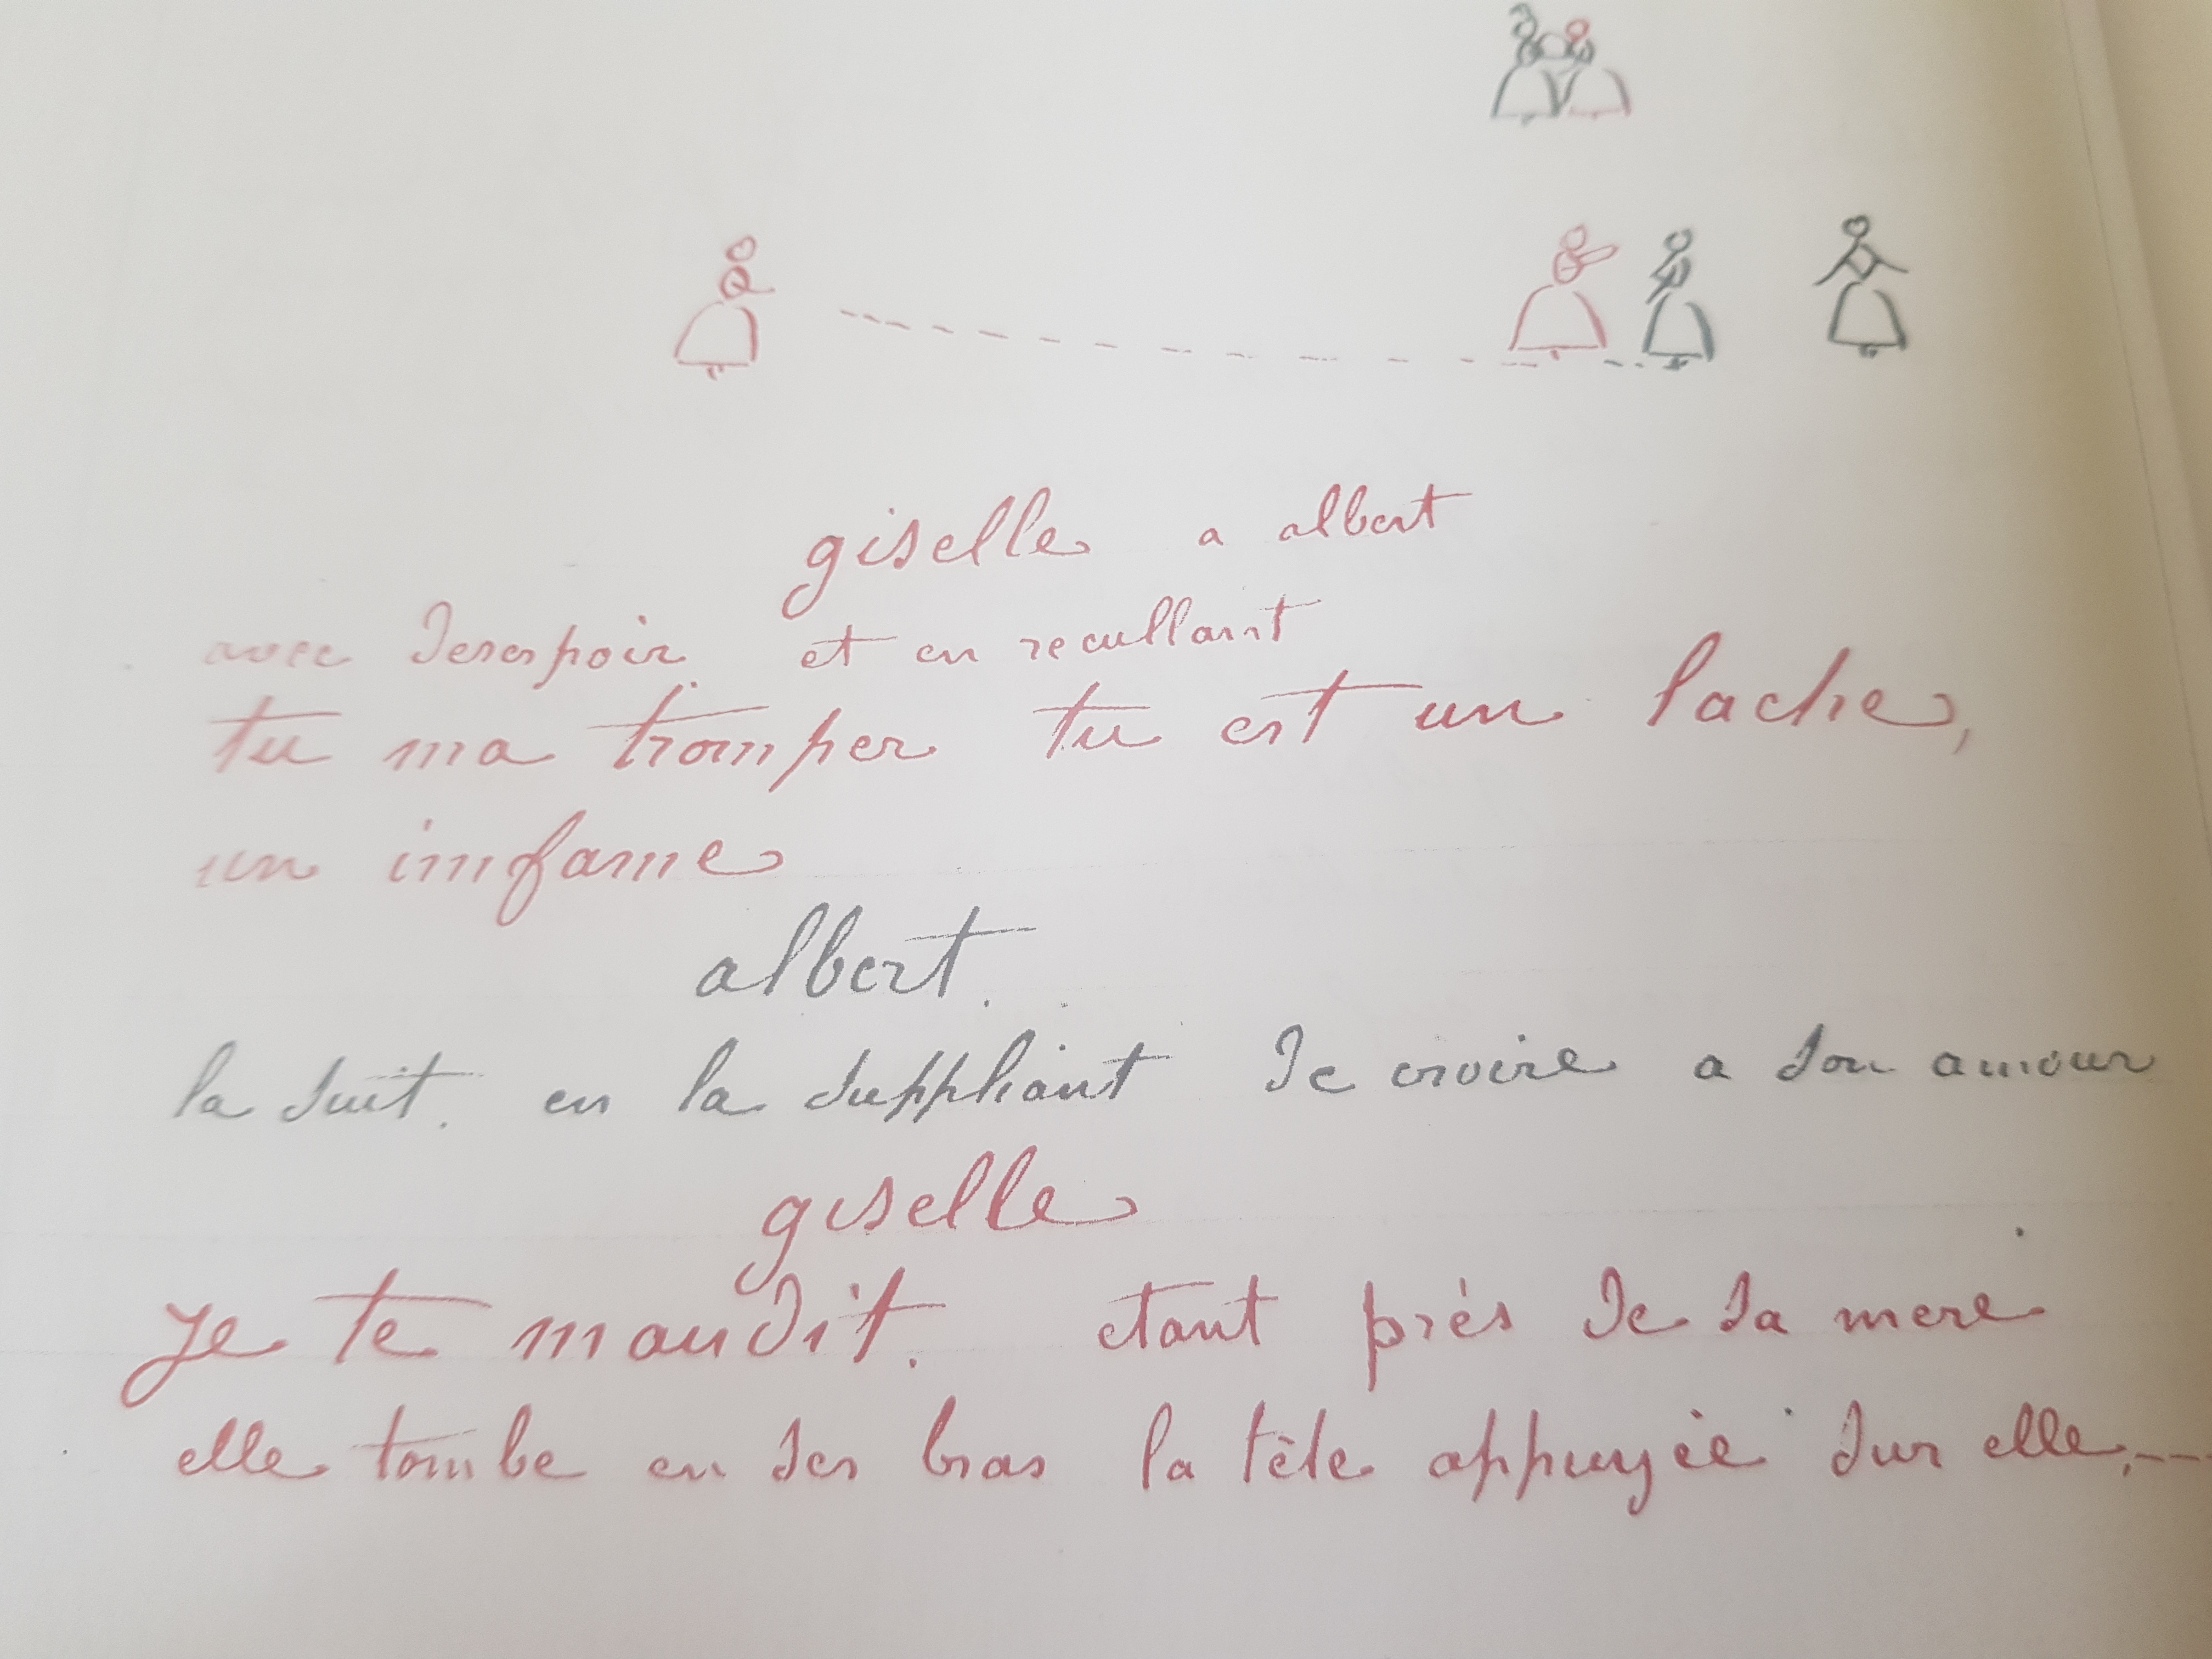 giselle a albert
avec desespoir et en recullant
tu ma tromper tu est un lache,
un imfame
albert.
la suit. en la suppliant de croire a son amour
giselle
je te maudit. etant près de sa mere
elle tombe en ses bras la tête appuyée sur elle,---